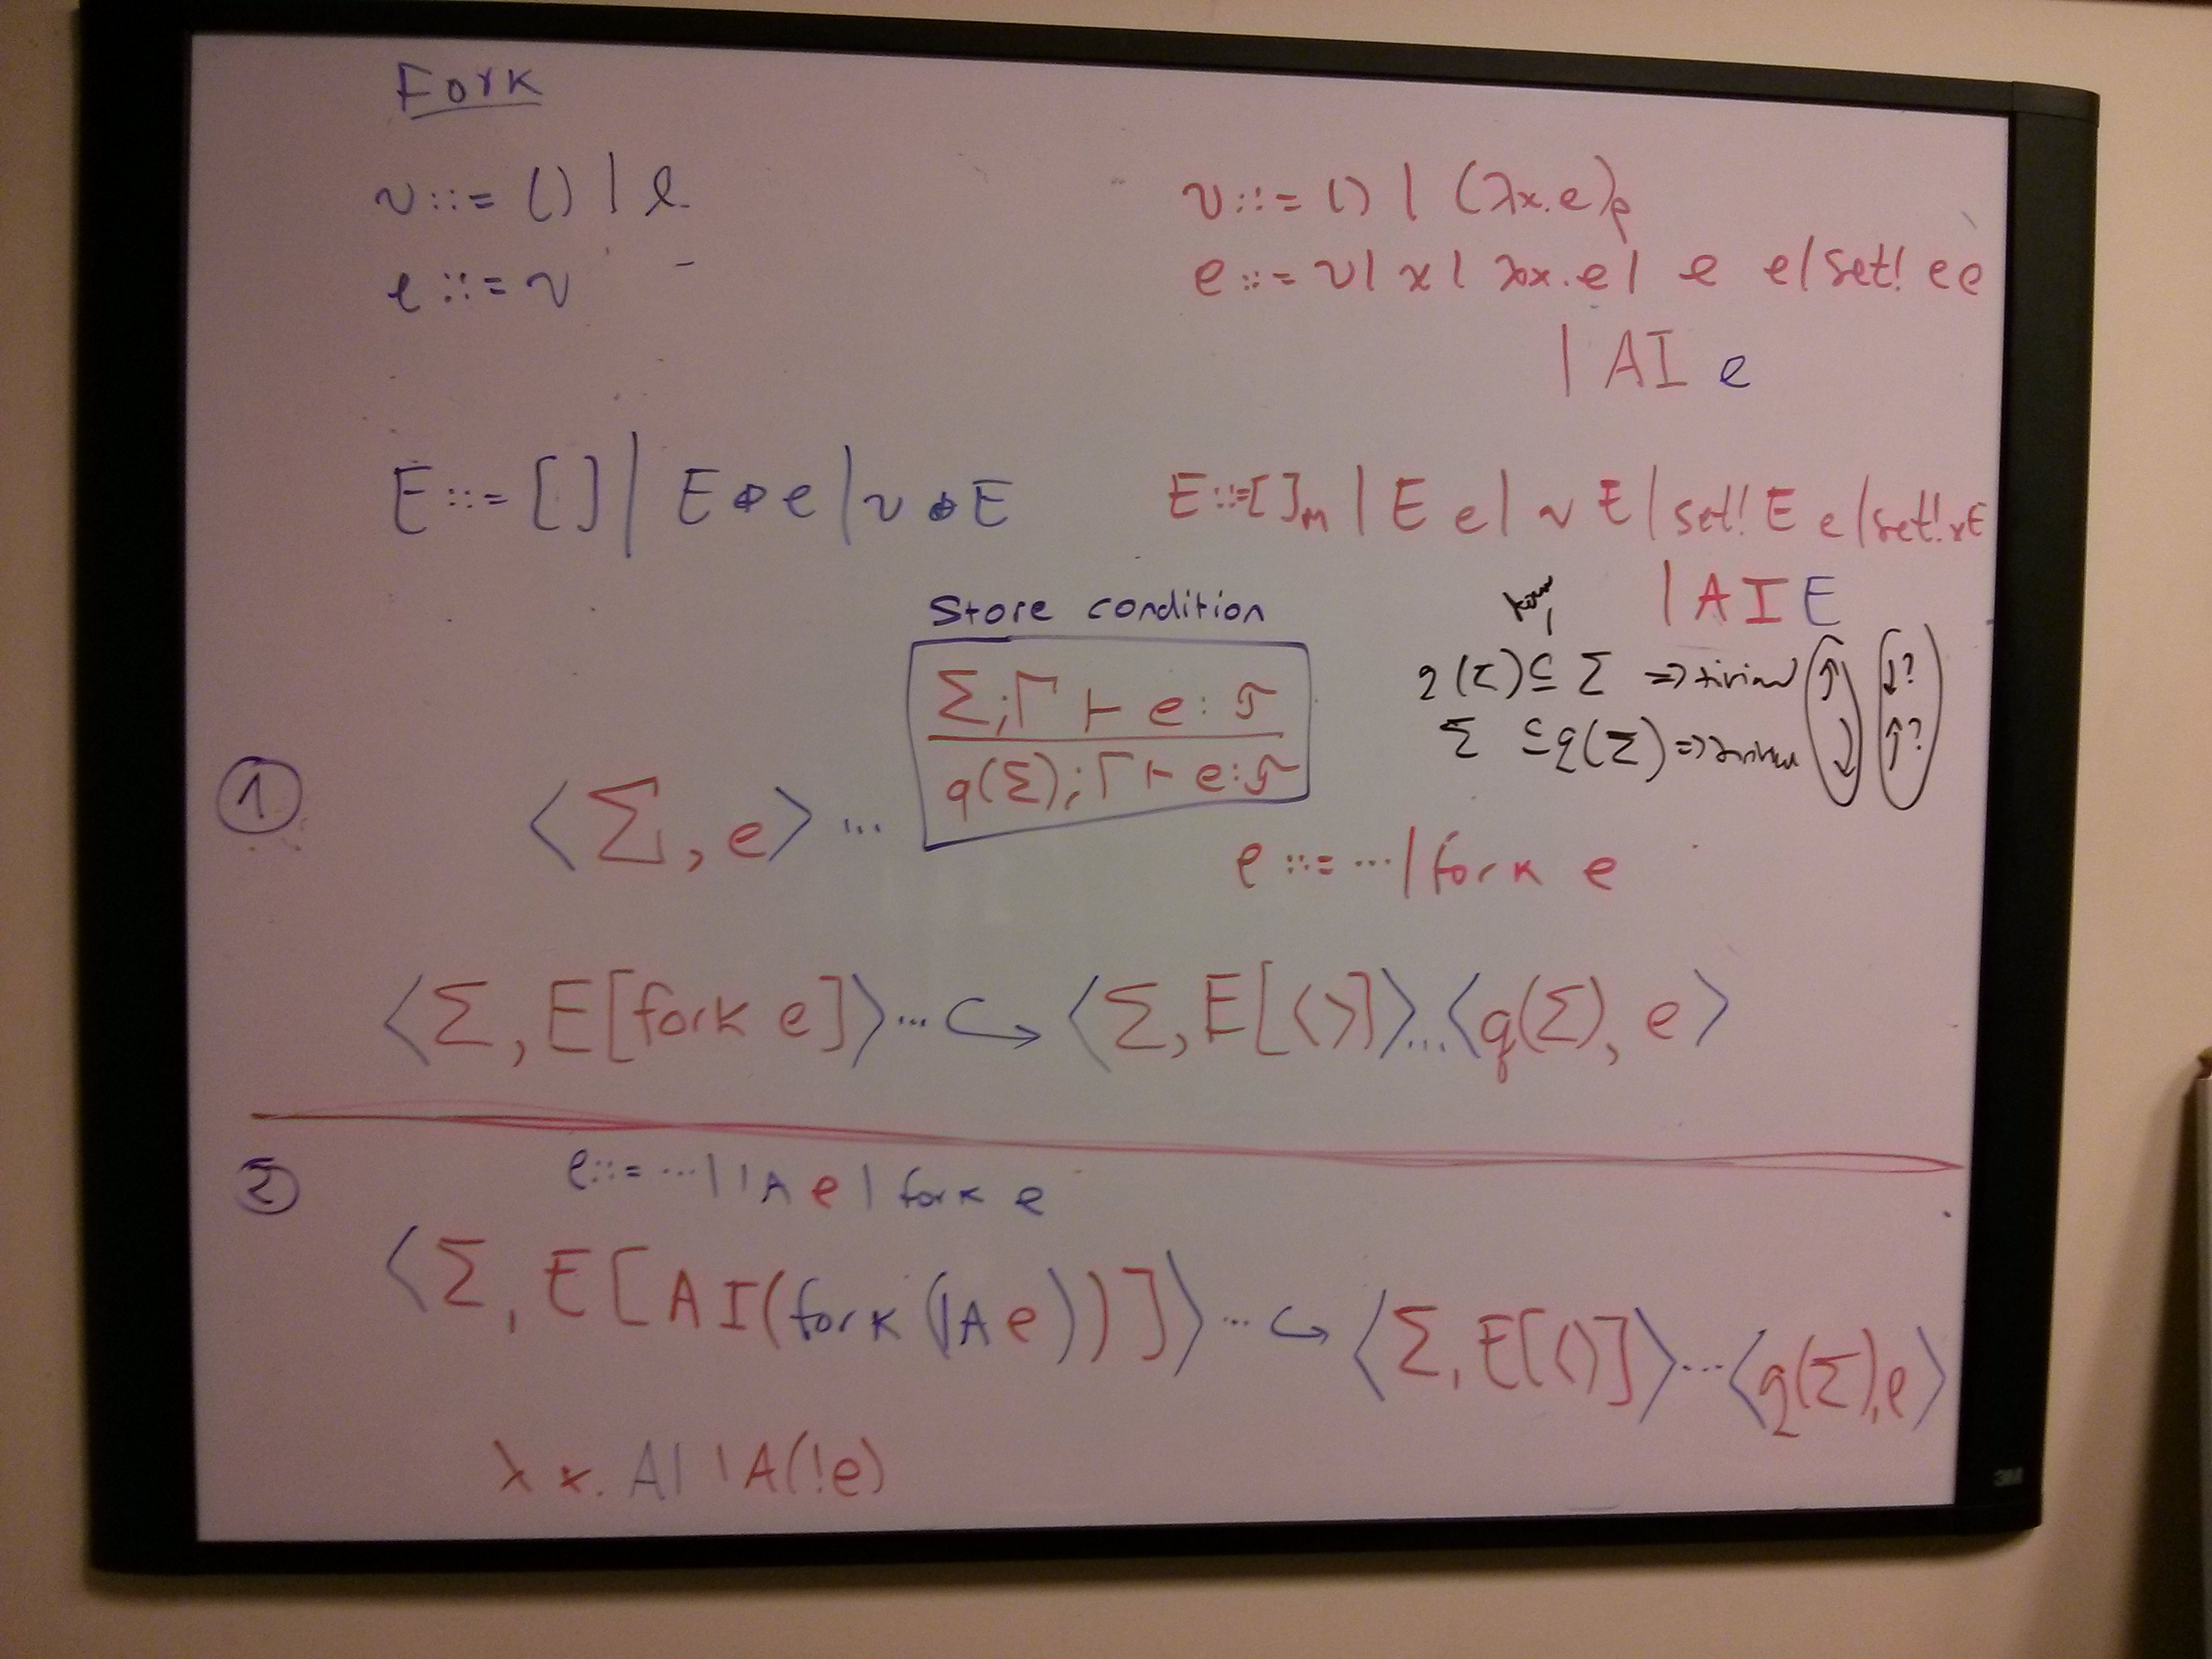 Fork
v ::= () | l
e ::= v
v ::= () | (λx.e)ρ
e ::= v | x | λx.e | e e | set! e e
| AI e
E ::= [ ] | E ⊕ e | v ⊕ E
E ::= [ ]m | E e | v E | set! E e | set! v E
| A I E
Store condition
Σ;Γ ⊢ e : τ
q(Σ);Γ ⊢ e : τ
q(Σ) ⊆ Σ ⇒ ↑ ↓?
Σ ⊆ q(Σ) ⇒ ↓ ↑?
① ⟨Σ, e⟩ ...
e ::= ... | fork e
⟨Σ, E[fork e]⟩ ... ↪ ⟨Σ, E[⟨⟩]⟩ ... ⟨q(Σ), e⟩
② e ::= ... | IA e | fork e
⟨Σ, E[AI(fork(IA e))]⟩ ... ↪ ⟨Σ, E[⟨⟩]⟩ ... ⟨q(Σ), e⟩
λ x. AI IA(!e)
3M